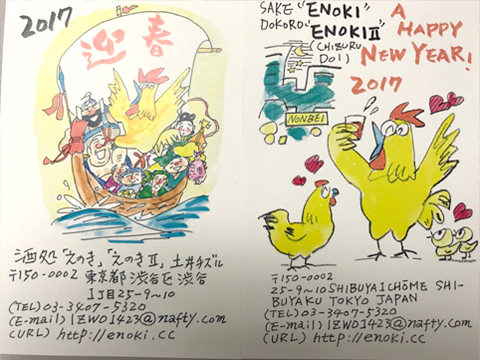 2017
迎春
酒処"えのき","えのきⅡ", 土井チヅル
〒150-0002 東京都渋谷区渋谷
1丁目25-9~10
(TEL) 03-3407-5320
(E-mail) IZWO1423@nafty.com
(URL) http://enoki.cc
SAKE "ENOKI"
DOKORO "ENOKIⅡ"
(CHIZURU
DOI)
A
HAPPY
NEW YEAR!
2017
NONBEI
〒150-0002
25-9~10 SHIBUYA1CHŌME SHI-
BUYAKU TOKYO JAPAN
(TEL) 03-3407-5320
(E-mail) IZWO1423@nafty.com
(URL) http://enoki.cc